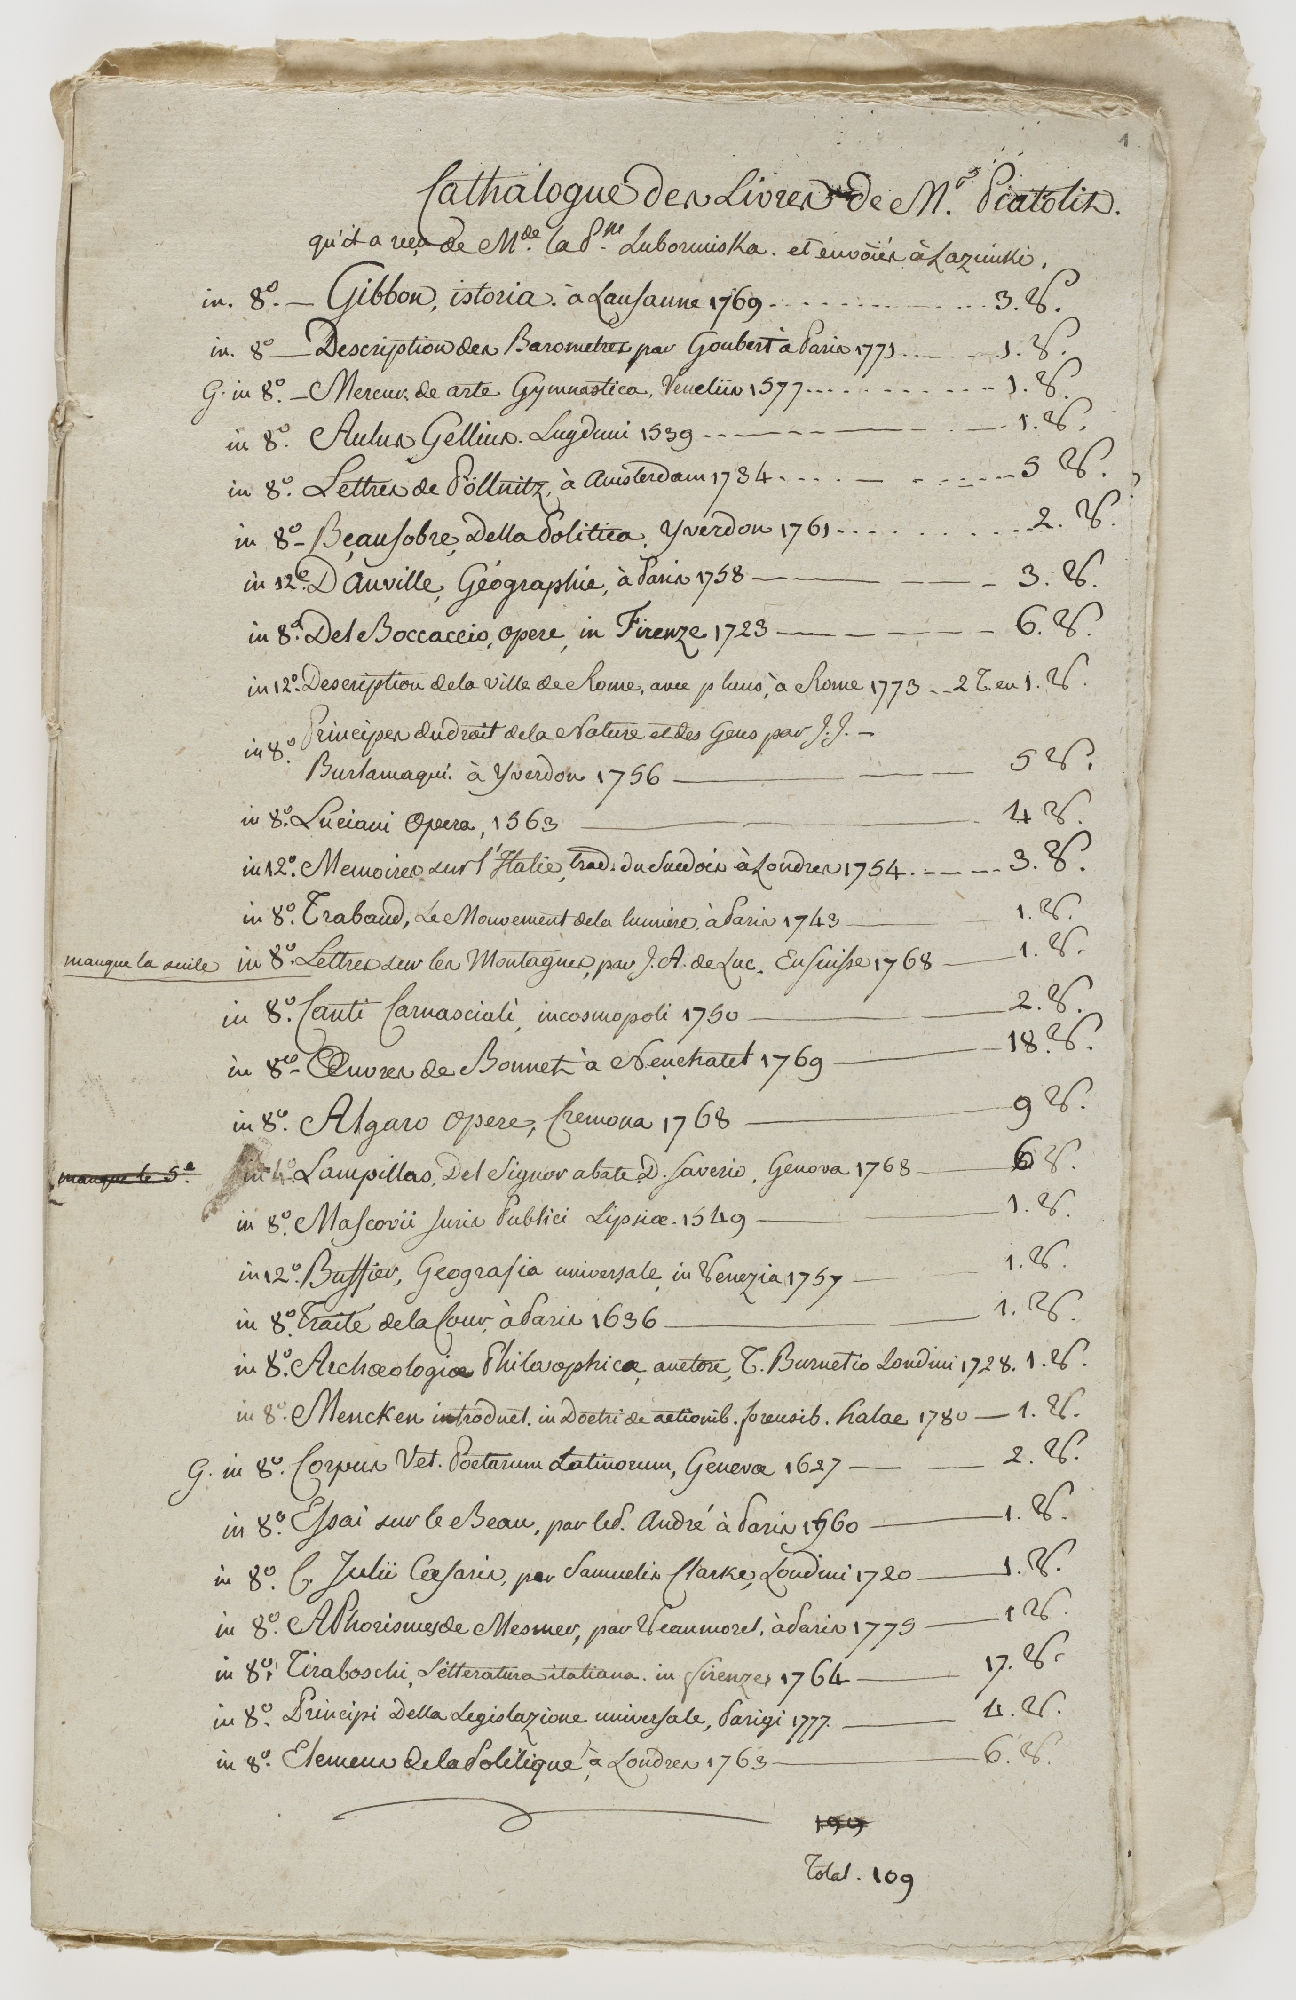 1
Cathalogue des Livres de Mr. Piatolis.
qu'il a reçu de Mde la Pss Lubormiska. et envoiés à Lazinki,
in. 8o. — Gibbon, istoria. à Lausanne 1769 . . . . . . . 3. V.
in. 8o — Description des Barometres par Goubert à Paris 1771 . . . 1. V.
G. in 8o. — Mercur. de arte Gymnastica, Venetiis 1577 . . . . . . 1. V.
in 8o. Aulus Gellius. Lugduni 1539 . . — — — 1. V.
in 8o. Lettres de Pöllnitz, à Amsterdam 1734 . . . . — 5 V.
in 8o — Beausobre, Della Politica, Yverdon 1761 . . . . . . 2. V.
in 12o. D'Anville, Géographie, à Paris 1758 — — — 3. V.
in 8o. Del Boccaccio, opere, in Firenze 1723 — — — 6. V.
in 12o. Description de la ville de Rome, avec plans, à Rome 1773 . . 2 T. en 1. V.
in 8o. Principes du droit de la Nature et des Gens par J. J. —
Burlamaqui. à Yverdon 1756 — — — 5 V.
in 8o. Luciani Opera, 1563 — — 4 V.
in 12o. Memoires sur l'Italie, trad. du Suedois à Londres 1754 . — — — 3. V.
in 8o. Trabaud, Le Mouvement de la lumiere, à Paris 1743 — 1. V.
manque la suite in 8o. Lettres sur les Montagnes, par J. A. de Luc. En Suisse 1768 — 1. V.
in 8o. Canti Carnasciali, in cosmopoli 1750 — — 2. V.
in 8o — Œuvres de Bonnet à Neuchatel 1769 — 18. V.
in 8o. Algaro opere, Cremona 1768 — 9 V.
manque le 5e. in 4o Lampillas, Del Signor abate D. Saverio, Genova 1768 — 6 V.
in 8o. Mascovii Juris Publici Lipsiæ. 1549 — — 1. V.
in 12o. Buffier, Geografia universale, in Venezia 1757 — 1. V.
in 8o. Traité de la Cour, à Paris 1636 — — 1. V.
in 8o. Archæologiæ Philosophicæ, auctore, T. Burnetio Londini 1728. 1. V.
in 8o. Mencken introduct. in Doctri de actionib. forensib. halae 1780 — 1. V.
G. in 8o. Corpus Vet. Poetarum Latinorum, Genevæ 1627 — — 2. V.
in 8o. Essai sur le Beau, par le P. André à Paris 1760 — 1. V.
in 8o. C. Julii Cæsaris, par Samuelis Clarke, Londini 1720 — 1. V.
in 8o. Aphorismes de Mesmer, par Veaumorel, à Paris 1775 — 1 V.
in 8o. Tiraboschi, Letteratura italiana. in firenze, 1764 — 17. V.
in 8o. Principi Della Legislazione universale, Parigi 1777. — 4. V.
in 8o. Elemens de la Politique à Londres 1763 — 6. V.
199
Total. 109